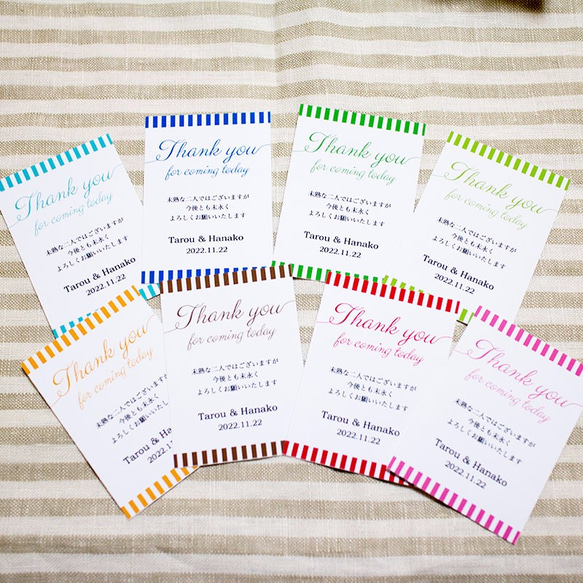 Thank you
for coming today
未熟な二人ではございますが
今後とも末永く
よろしくお願いいたします
Tarou & Hanako
2022.11.22
Thank you
for coming today
未熟な二人ではございますが
今後とも末永く
よろしくお願いいたします
Tarou & Hanako
2022.11.22
Thank you
for coming today
未熟な二人ではございますが
今後とも末永く
よろしくお願いいたします
Tarou & Hanako
2022.11.22
Thank you
for coming today
未熟な二人ではございますが
今後とも末永く
よろしくお願いいたします
Tarou & Hanako
2022.11.22
Thank you
for coming today
未熟な二人ではございますが
今後とも末永く
よろしくお願いいたします
Tarou & Hanako
2022.11.22
Thank you
for coming today
未熟な二人ではございますが
今後とも末永く
よろしくお願いいたします
Tarou & Hanako
2022.11.22
Thank you
for coming today
未熟な二人ではございますが
今後とも末永く
よろしくお願いいたします
Tarou & Hanako
2022.11.22
Thank you
for coming today
未熟な二人ではございますが
今後とも末永く
よろしくお願いいたします
Tarou & Hanako
2022.11.22